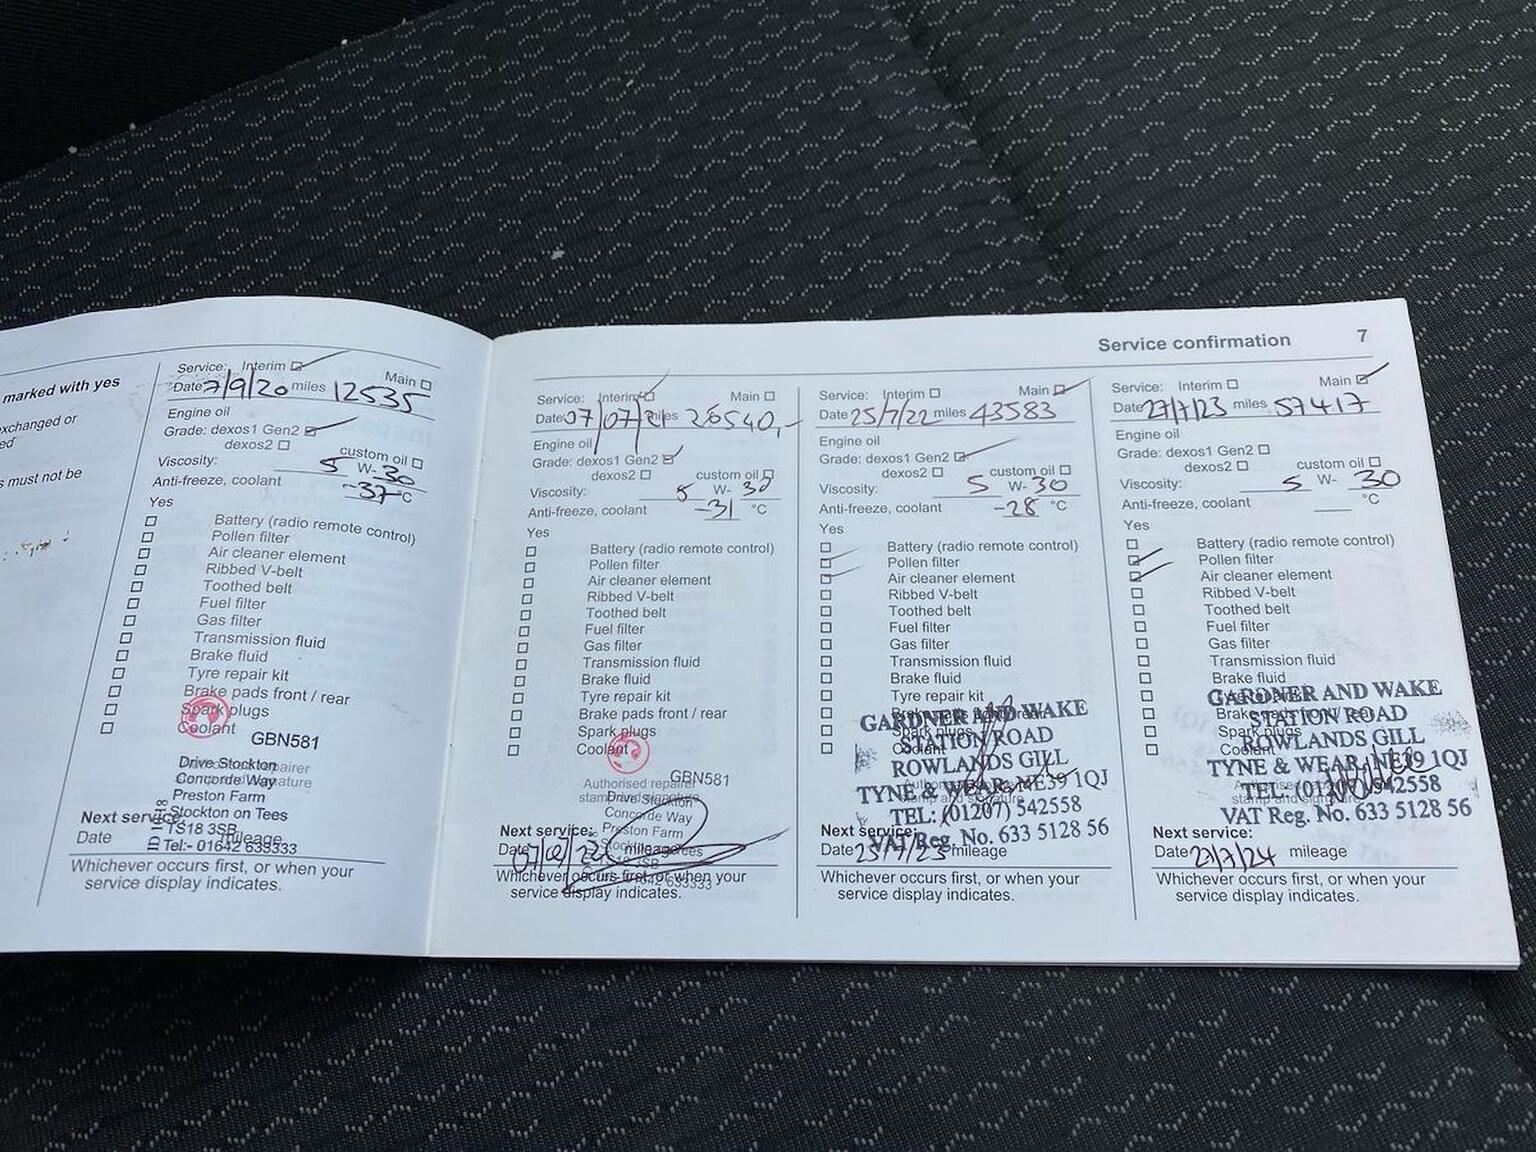 marked with yes
exchanged or
ed
s must not be
Service: Interim Main
Date 7/9/20 miles 12535
Engine oil
Grade: dexos1 Gen2
dexos2 custom oil
Viscosity: 5 W-30
Anti-freeze, coolant -37°C
Yes
Battery (radio remote control)
Pollen filter
Air cleaner element
Ribbed V-belt
Toothed belt
Fuel filter
Gas filter
Transmission fluid
Brake fluid
Tyre repair kit
Brake pads front / rear
Spark plugs
Coolant
GBN581
Drive Stockton
Concorde Way
Preston Farm
Stockton on Tees
TS18 3SB
Tel:- 01642 633333
Next service:
Date mileage
Whichever occurs first, or when your
service display indicates.
Service confirmation 7
Service: Interim Main
Date 07/07/21 miles 26540
Engine oil
Grade: dexos1 Gen2
dexos2 custom oil
Viscosity: 5 W- 30
Anti-freeze, coolant -31 °C
Yes
Battery (radio remote control)
Pollen filter
Air cleaner element
Ribbed V-belt
Toothed belt
Fuel filter
Gas filter
Transmission fluid
Brake fluid
Tyre repair kit
Brake pads front / rear
Spark plugs
Coolant
GBN581
Authorised repairer
Drive Stockton
Concorde Way
Preston Farm
Next service:
Date mileage
Whichever occurs first, or when your
service display indicates.
Service: Interim Main
Date 25/7/22 miles 43583
Engine oil
Grade: dexos1 Gen2
dexos2 custom oil
Viscosity: 5 W- 30
Anti-freeze, coolant -28 °C
Yes
Battery (radio remote control)
Pollen filter
Air cleaner element
Ribbed V-belt
Toothed belt
Fuel filter
Gas filter
Transmission fluid
Brake fluid
Tyre repair kit
GARDNER AND WAKE
STATION ROAD
ROWLANDS GILL
TYNE & WEAR, NE39 1QJ
TEL: (01207) 542558
VAT Reg. No. 633 5128 56
Next service:
Date 25/7/23 mileage
Whichever occurs first, or when your
service display indicates.
Service: Interim Main
Date 27/7/23 miles 57417
Engine oil
Grade: dexos1 Gen2
dexos2 custom oil
Viscosity: 5 W- 30
Anti-freeze, coolant °C
Yes
Battery (radio remote control)
Pollen filter
Air cleaner element
Ribbed V-belt
Toothed belt
Fuel filter
Gas filter
Transmission fluid
Brake fluid
GARDNER AND WAKE
STATION ROAD
ROWLANDS GILL
TYNE & WEAR, NE39 1QJ
TEL: (01207) 542558
VAT Reg. No. 633 5128 56
Next service:
Date 27/7/24 mileage
Whichever occurs first, or when your
service display indicates.